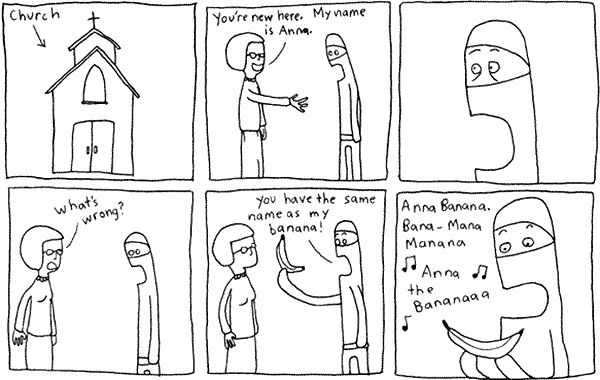 Church
You're new here. My name
is Anna.
What's
wrong?
you have the same
name as my
banana!
Anna Banana.
Bana-Mana
Manana
Anna
the
Bananaaa